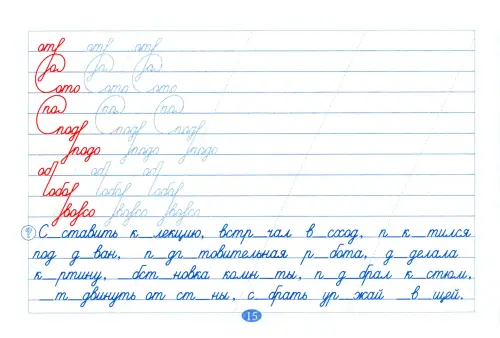 от от от
ото ото ото
по по по
под под под
подо подо подо
об об об
обо обо обо
С_ставить к_лекцию, встр_чал в_сход, п_к_тился
под д_ван, п_дг_товительная р_бота, д_делала
к_ртину, _бст_новка комн_ты, п_д_брал к_стюм,
_т_двинуть от ст_ны, с_брать ур_жай _в_щей.
15